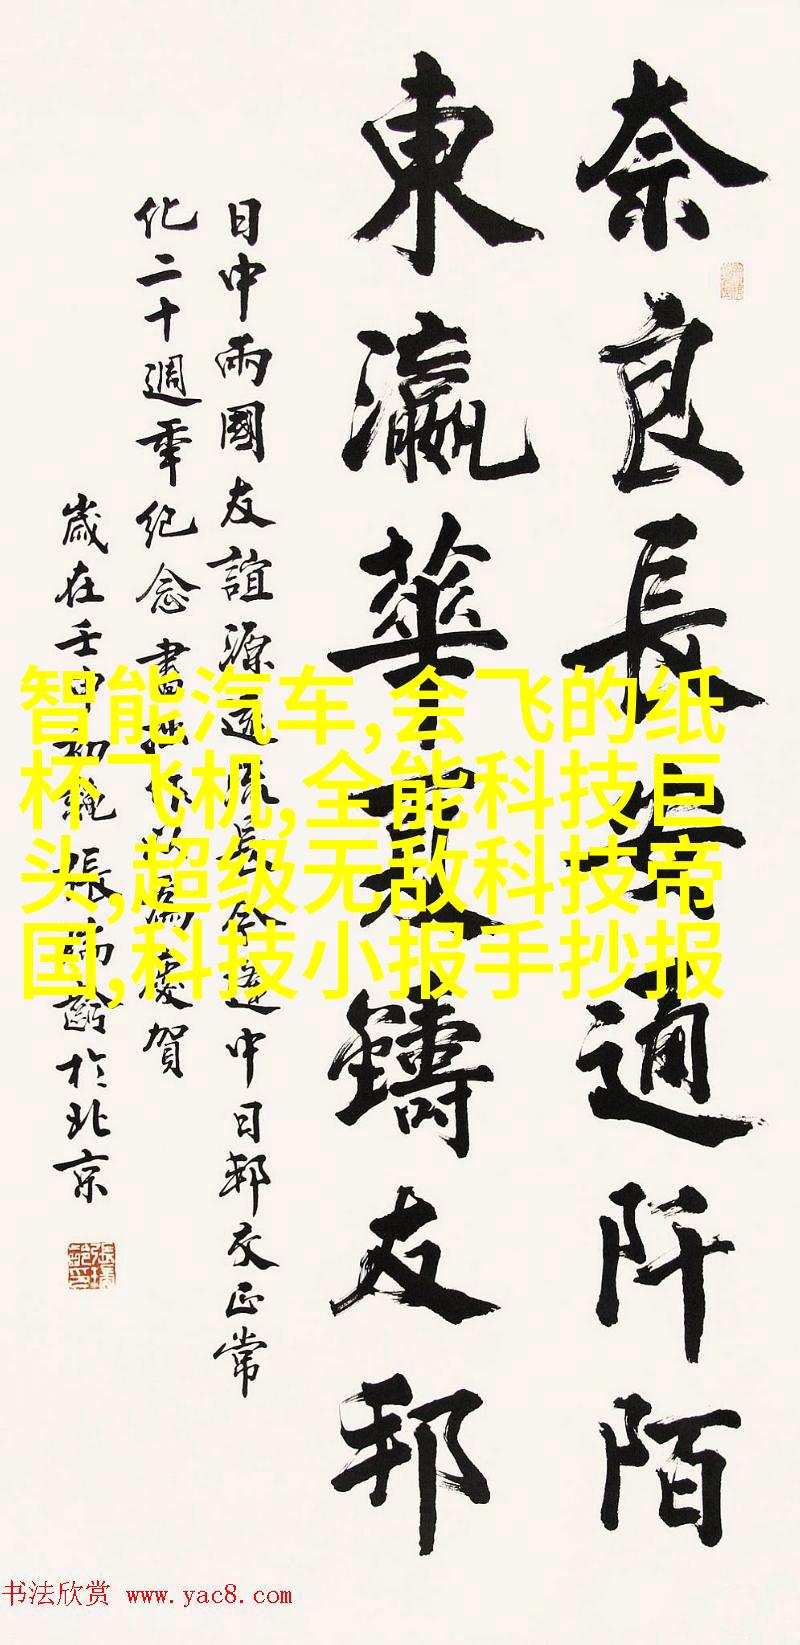 奈良長安通阡陌
東瀛華夏鑄友邦
日中兩國友誼源遠流長今逢中日邦交正常
化二十週年紀念書拙作以為慶賀
歲在壬申初張瑞齡於北京
智能汽车,会飞的纸
杯飞机,全能科技巨
头,超级无敌科技帝
国,科技小报手抄报
书法欣赏 www.yac8.com